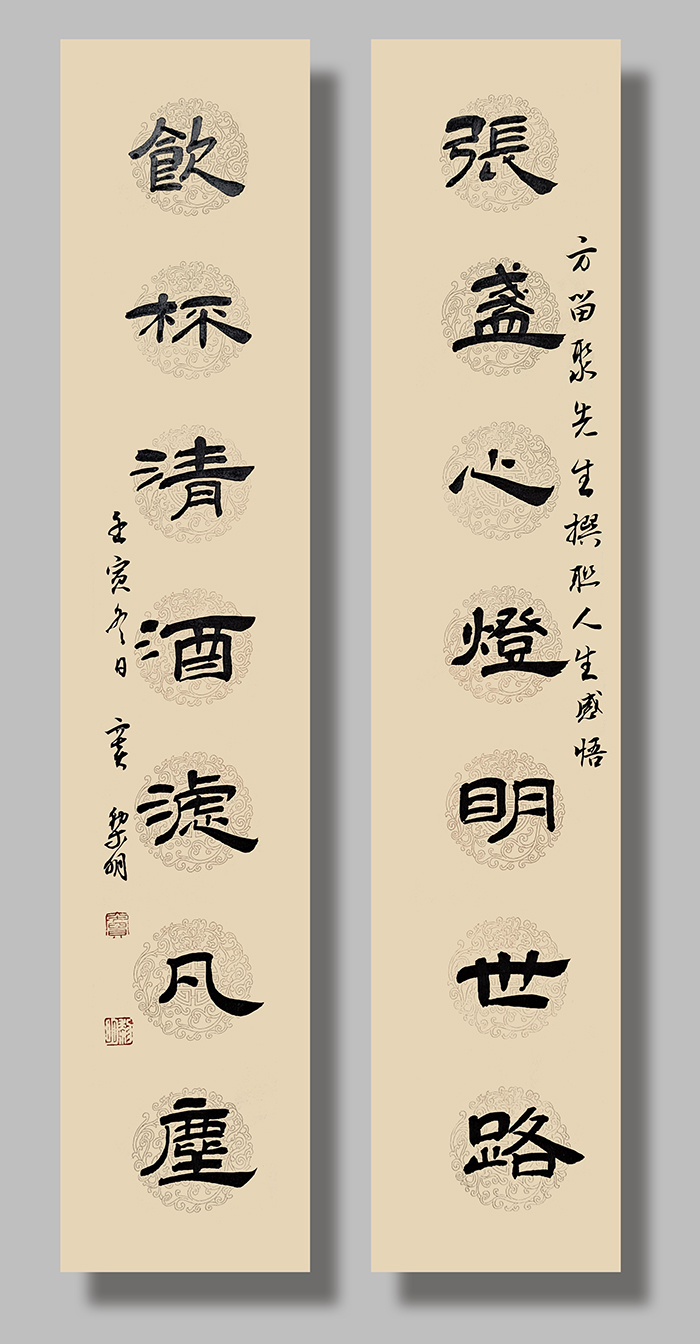 張盞心燈明世路
方留聚先生撰聯人生感悟
飲杯清酒滤凡塵
壬寅冬日 竇黎明